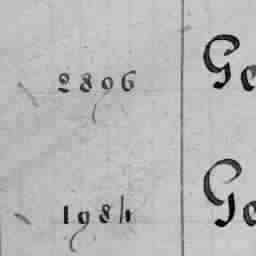 2896 Ge
1984 Ge